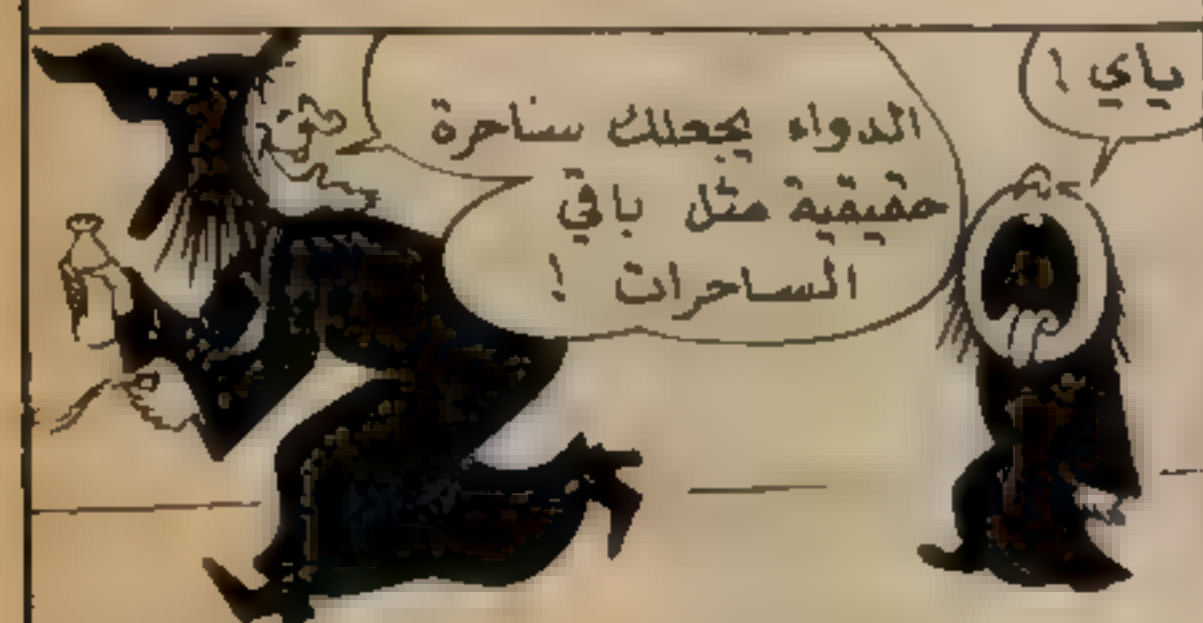 ياي !
الدواء يجعلك ساحرة
حقيقية مثل باقي
الساحرات !